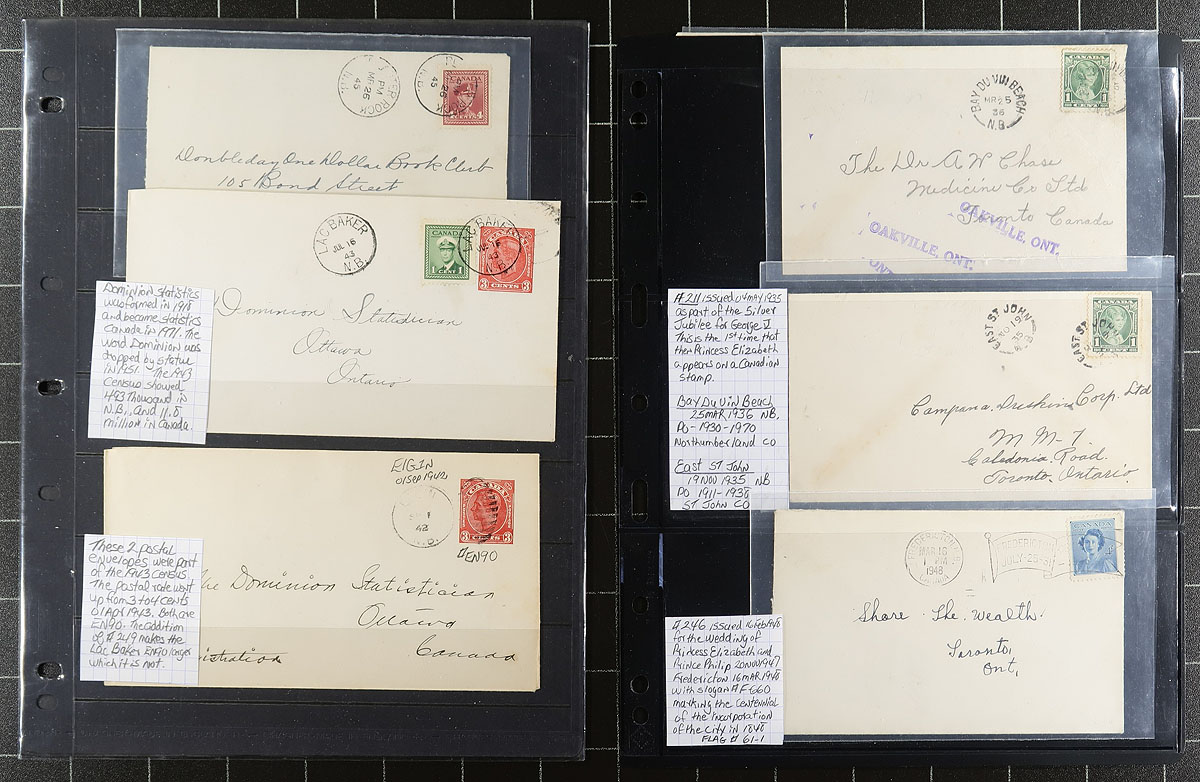 PM
MR 26
45
ROCK
CANADA
CENTS
Doubleday One Dollar Book Club
105 Bond Street
LAC BAKER
JUL 16
43
N.B.
CANADA
1 CENT 1
LAC BAKER
JUL 16
43
N.B.
3 CENTS 3
Dominion Statistician
Ottawa
Ontario
Dominion Statistics
was formed in
and became Statistics
Canada in 1971. The
word Dominion was
dropped by statue
in 1951. The 1943
Census showed
493 thousand in
N.B., and 11.8
million in Canada
ELGIN
01 Sep 1942
42
CANADA
3 CENTS 3
#EN90
The Dominion Statistician
Ottawa
Canada
These 2 postal
envelopes were part
of the 1943 census.
The postal rate went
up from 3 to 4 cents
01 Apr 1943. Both are
EN90. The addition
of # 249 makes the
Lac Baker EN90 larger
which it is not.
BAY DU VIN BEACH
MR 25
36
N.B.
1 1
The Dr A W Chase
Medicine Co Ltd
Toronto Canada
OAKVILLE, ONT.
OAKVILLE, ONT.
ONT.
#211 issued 04 May 1935
as part of the Silver
Jubilee for George V
This is the 1st time that
then Princess Elizabeth
appears on a Canadian
stamp.
Bay Du Vin Beach
25 MAR 1936 NB.
PO - 1930 - 1970
Northumberland CO
East ST John
19 NOV 1935 NB
PO 1911 - 1938
ST John CO
EAST ST JOHN
NO 19
35
N.B.
EAST ST JOHN
1 CENT 1
Campana Corp. Ltd
M M - T.
Caledonia Road.
Toronto Ontario.
FREDERICTON
MAR 16
PM
1948
CANADA
FREDERICTON
CANADA
Share The Wealth.
Toronto,
Ont,
#246 issued 16 Feb 1948
for the wedding of
Princess Elizabeth and
Prince Philip 20 NOV 1947
Fredericton 16 MAR 1948
with slogan # F660
marking the Centennial
of the incorporation
of the City in 1848
FLAG # 61-1